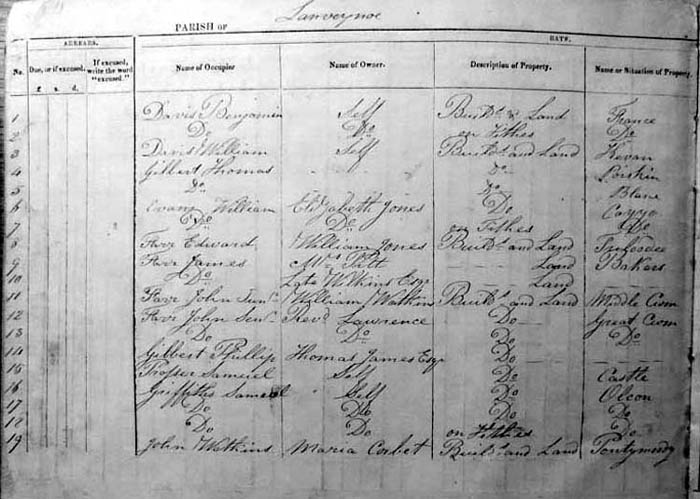 PARISH OF Lanveynoe
ARREARS. RATE.
No. Due, or if excused. If excused, write the word "excused." Name of Occupier Name of Owner. Description of Property. Name or Situation of Property
£ s. d.
1 Davis Benjamin Self Build.s & Land France
2 Do Do on Tithes Do
3 Davis William Self Build.s and Land Kevan
4 Gilbert Thomas Do
5 Do Do Blane
6 Evans William Elizabeth Jones Do
7 Do Do on Tithes Do
8 Farr Edward William Jones Build.s and Land
9 Farr James Mrs Pitt Land Bakers
10 Do Late Wilkins Esq Land
11 Farr John Junr William Watkins Build.s and Land Middle Cwm
12 Farr John Senr Revd Lawrence Do Great Cwm
13 Do Do Do Do
14 Gilbert Phillip Thomas James Esqr Do
15 Prosser Samuel Self Do Castle
16 Griffiths Samuel Self Do Olcon
17 Do Do Do Do
18 Do Do on Tithes Do
19 John Watkins Maria Corbet Build.s and Land